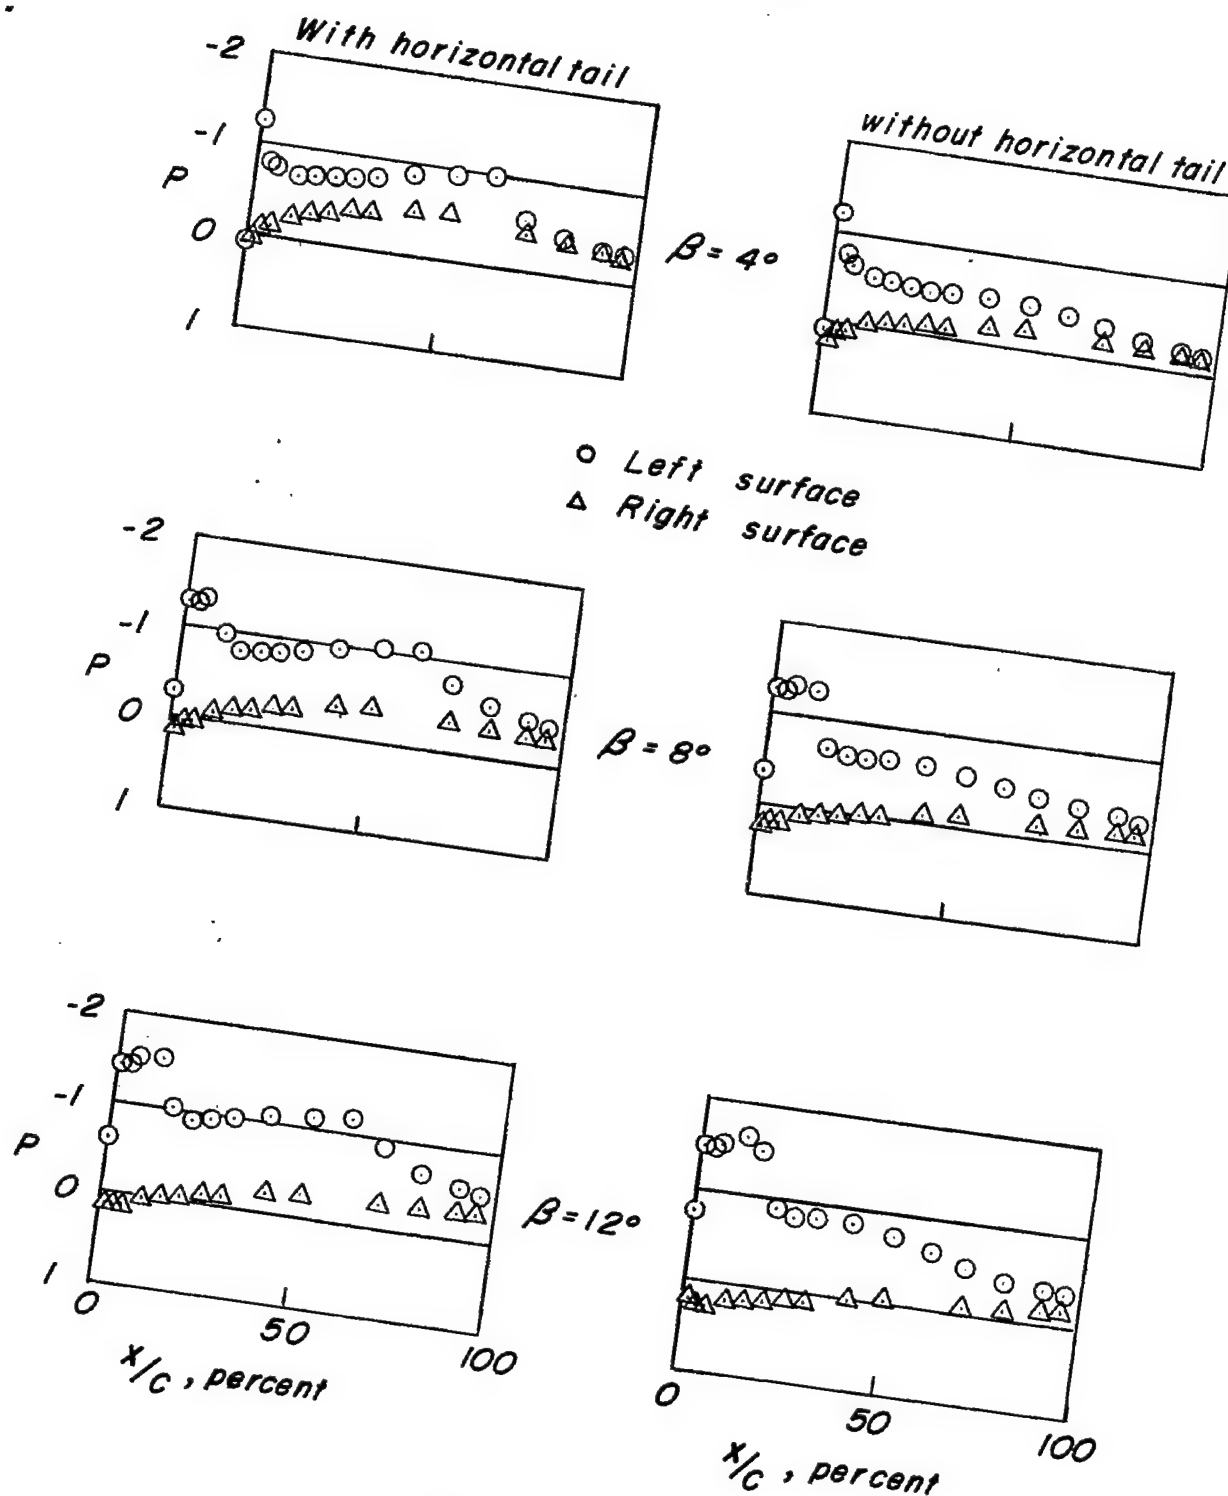 With horizontal tail
without horizontal tail
-2
-1
P
0
1
β = 4°
O Left surface
Δ Right surface
-2
-1
P
0
1
β = 8°
-2
-1
P
0
1
β = 12°
0
50
100
x/c, percent
0
50
100
x/c, percent